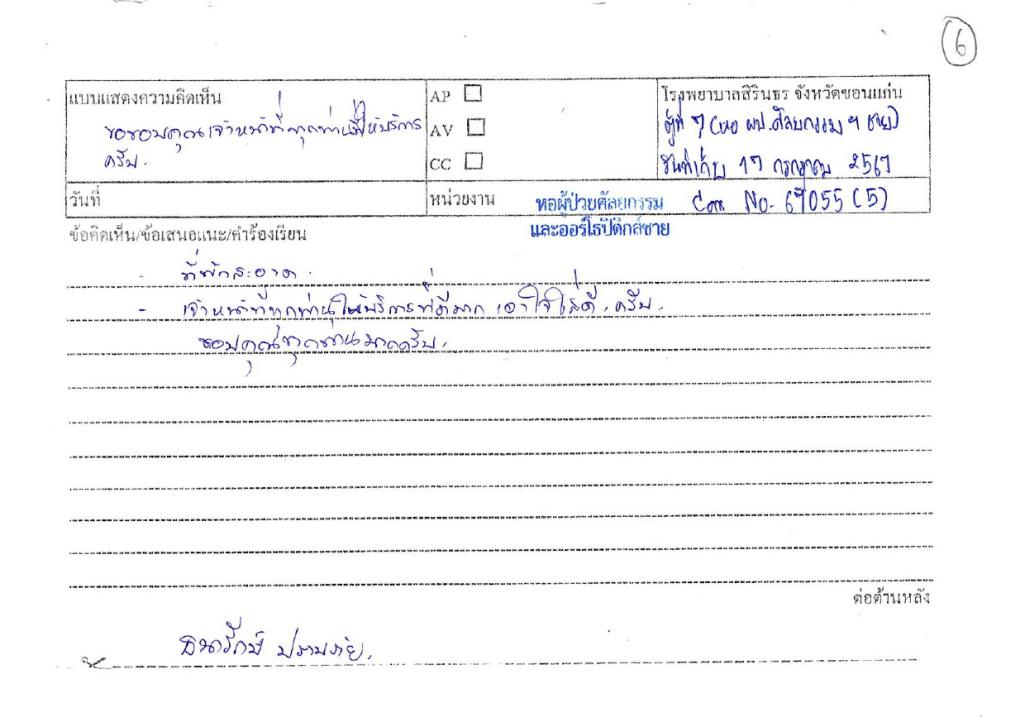 6
แบบแสดงความคิดเห็น
ขอขอบคุณเจ้าหน้าที่ทุกท่านที่ให้บริการ
ครับ.
AP
AV
CC
โรงพยาบาลสิรินธร จังหวัดขอนแก่น
ตู้ที่ 7 (หอ ผป.ศัลยกรรมฯ ชาย)
วันที่เก็บ 17 กรกฎาคม 2567
วันที่
หน่วยงาน
หอผู้ป่วยศัลยกรรม
และออร์โธปิดิกส์ชาย
Com No. 67055 (5)
ข้อคิดเห็น/ข้อเสนอแนะ/คำร้องเรียน
- ที่พักสะอาด.
- เจ้าหน้าที่ทุกท่านให้บริการที่ดีมาก เอาใจใส่ดี. ครับ.
ขอบคุณทุกท่านมากครับ.
ต่อด้านหลัง
ธนารักษ์